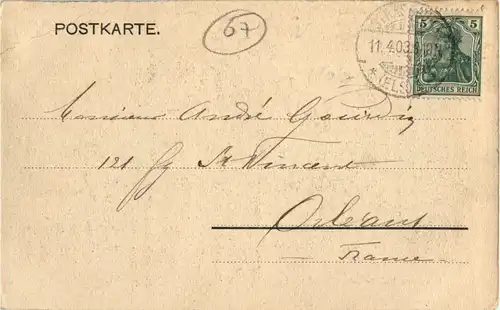 POSTKARTE.
67
11.4.03.
* (ELS
5 5
DEUTSCHES REICH
Monsieur André Gourdin
121 Fg St Vincent
Orléans
France